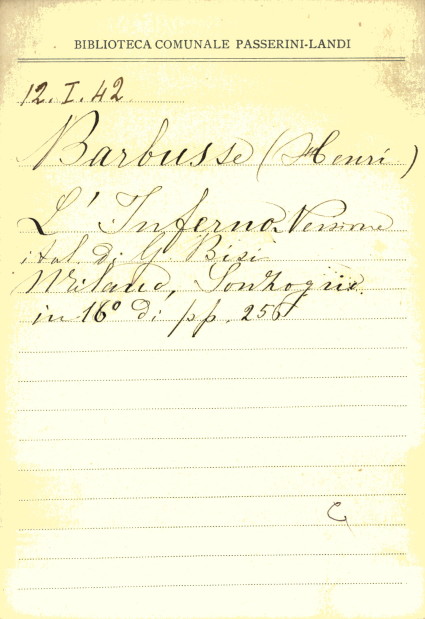 BIBLIOTECA COMUNALE PASSERINI-LANDI
12.I.42
Barbusse (Henri)
L'Inferno. Versione
ital. di G. Bisi
Milano, Sonzogno.
in 16° di pp. 256
G